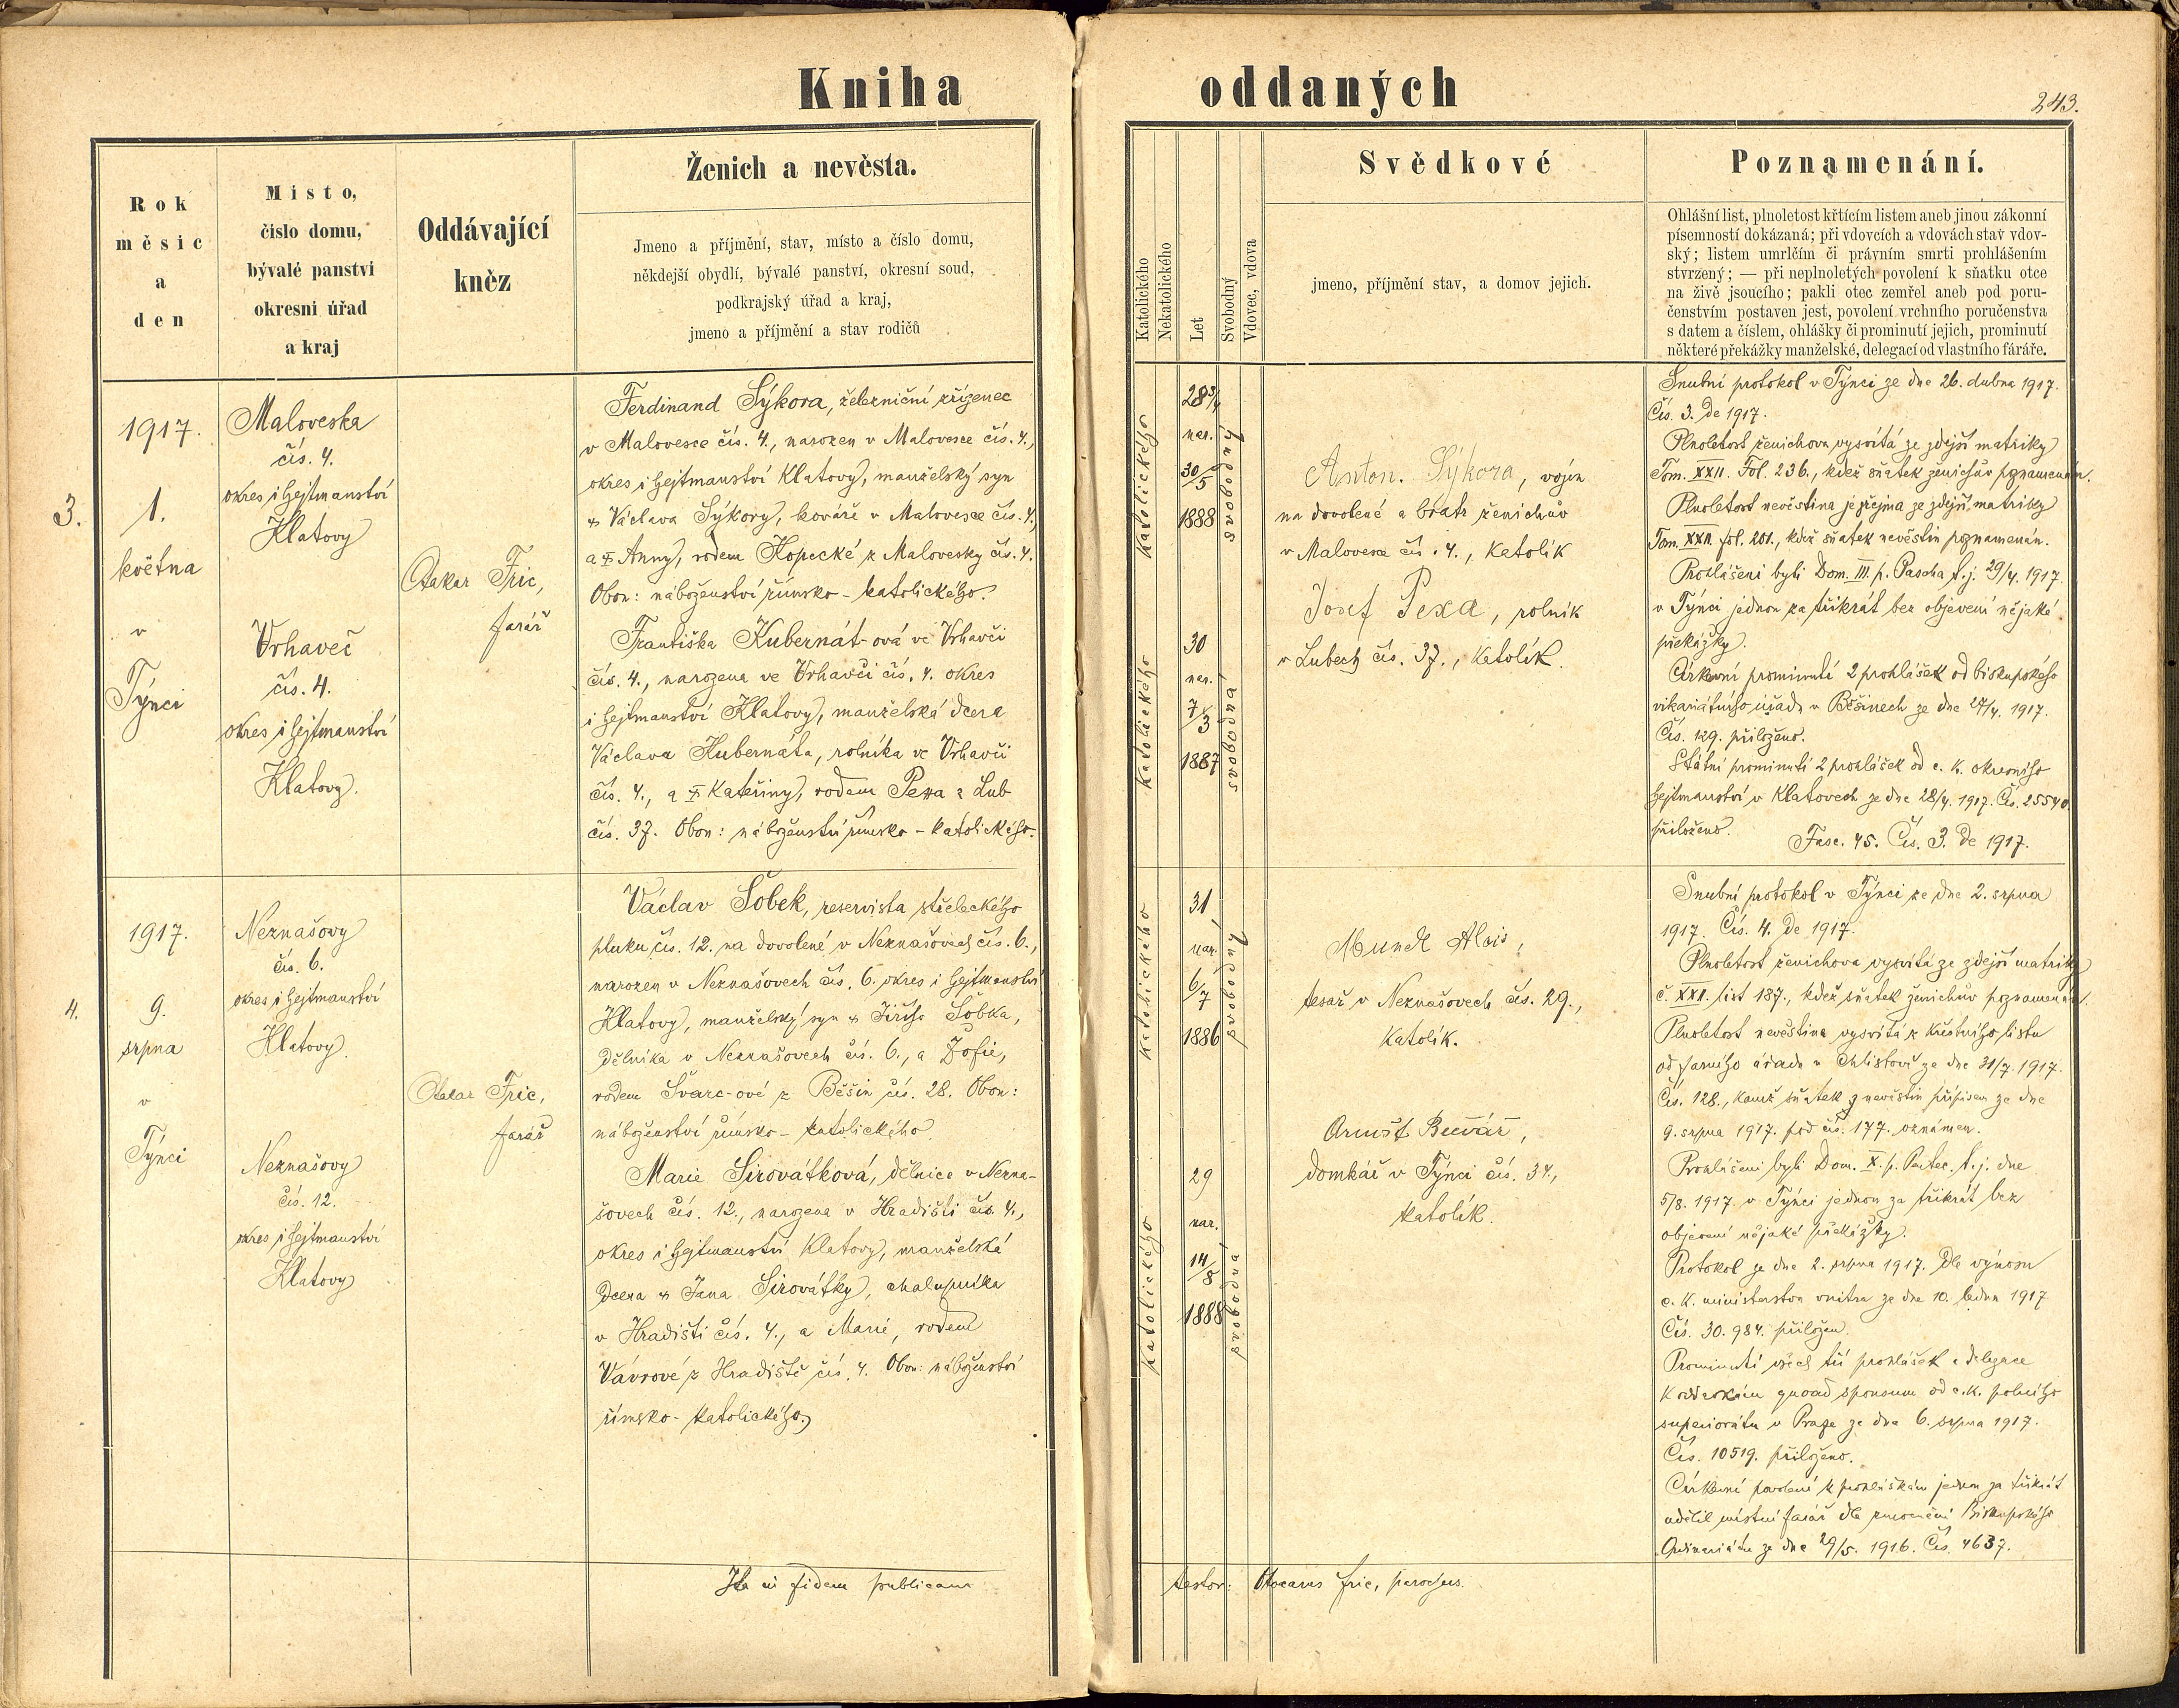 Kniha oddaných
243.
Rok
měsíc
a
den
Místo,
číslo domu,
bývalé panství
okresní úřad
a kraj
Oddávající
kněz
Ženich a nevěsta.
Jmeno a příjmění, stav, místo a číslo domu,
někdejší obydlí, bývalé panství, okresní soud,
podkrajský úřad a kraj,
jmeno a příjmění a stav rodičů
Katolického
Nekatolického
Let
Svobodný
Vdovec, vdova
Svědkové
jmeno, příjmění stav, a domov jejich.
Poznamenání.
Ohlášní list, plnoletost křtícím listem aneb jinou zákonní
písemností dokázaná; při vdovcích a vdovách stav vdov-
ský; listem umrlčím či právním smrti prohlášením
stvrzený; — při neplnoletých povolení k sňatku otce
na živě jsoucího; pakli otec zemřel aneb pod poru-
čenstvím postaven jest, povolení vrchního poručenstva
s datem a číslem, ohlášky či prominutí jejich, prominutí
některé překážky manželské, delegací od vlastního fáráře.
3.
1917.
1.
května
v
Týnci
Maloveska
čís. 4.
okres i hejtmanství
Klatovy
Vrhaveč
čís. 4.
okres i hejtmanství
Klatovy.
Otakar Fric,
farář
Ferdinand Sýkora, železniční zřízenec
v Malovesce čís. 4., narozen v Malovesce čís. 4.,
okres i hejtmanství Klatovy, manželský syn
Václava Sýkory, kováře v Malovesce čís. 4.,
a Anny, rodem Kopecké z Malovesky čís. 4.
Obon: náboženství římsko-katolického.
Františka Kubernát-ová ve Vrhavči
čís. 4., narozena ve Vrhavči čís. 4. okres
i hejtmanství Klatovy, manželská dcera
Václava Kubernáta, rolníka ve Vrhavči
čís. 4., a Kateřiny, rodem Pexa z Lub
čís. 37. Obon: náboženství římsko-katolického.
katolického
28 3/4
nar.
30/5
1888
svobodný
katolického
30
nar.
7/3
1887
svobodná
Anton. Sýkora, vojín
na dovolené a bratr ženichův
v Malovesce čís. 4., katolík
Josef Pexa, rolník
v Lubech čís. 37., katolík.
Snubní protokol v Týnci ze dne 26. dubna 1917.
Čís. 3. de 1917.
Plnoletost ženichova vysvítá ze zdejší matriky
Tom. XXII. Fol. 236., kdež sňatek ženichův poznamenán.
Plnoletost nevěstina je zřejma ze zdejší matriky
Tom. XXII. fol. 201., kdež sňatek nevěstin poznamenán.
Prohlášeni byli Dom. III. p. Pascha t. j. 29/4. 1917.
v Týnci jednou za třikrát bez objevení nějaké
překážky.
Církevní prominutí 2 prohlášek od biskupského
vikariátního úřadu v Běšinech ze dne 27/4. 1917.
Čís. 129. přiloženo.
Státní prominutí 2 prohlášek od c. k. okresního
hejtmanství v Klatovech ze dne 28/4. 1917. Čís. 25540.
přiloženo.
Fasc. 45. Čís. 3. de 1917.
4.
1917.
9.
srpna
v
Týnci
Neznašovy
čís. 6.
okres i hejtmanství
Klatovy.
Neznašovy
čís. 12.
okres i hejtmanství
Klatovy
Otakar Fric,
farář
Václav Šobek, reservista střeleckého
pluku čís. 12. na dovolené v Neznašovech čís. 6.,
narozen v Neznašovech čís. 6. okres i hejtmanství
Klatovy, manželský syn Jiřího Šobka,
dělníka v Neznašovech čís. 6., a Žofie,
rodem Švarc-ové z Běšin čís. 28. Obon:
náboženství římsko-katolického.
Marie Sirovátková, dělnice v Nezna-
šovech čís. 12., narozena v Hradišti čís. 4.,
okres i hejtmanství Klatovy, manželská
dcera Jana Sirovátky, chalupníka
v Hradišti čís. 4., a Marie, rodem
Vávrové z Hradiště čís. 4. Obon: náboženství
římsko-katolického.
katolického
31
nar.
6/7
1886
svobodný
katolického
29
nar.
14/8
1888
svobodná
Mundl Alois,
tesař v Neznašovech čís. 29.,
katolík.
Arnošt
domkář v Týnci čís. 34.,
katolík.
Snubní protokol v Týnci ze dne 2. srpna
1917. Čís. 4. de 1917.
Plnoletost ženichova vysvítá ze zdejší matriky
č. XXII. list 187., kdež sňatek ženichův poznamenán.
Plnoletost nevěstina vysvítá z křestního listu
od farního úřadu v Chlistově ze dne 31/7. 1917.
Čís. 128., kamž sňatek nevěstin přípisem ze dne
9. srpna 1917. pod čís. 177. oznámen.
Prohlášeni byli Dom. X. p. Pentec. t. j. dne
5/8. 1917 v Týnci jednou za třikrát bez
objevení nějaké překážky.
Protokol ze dne 2. srpna 1917. dle výnosu
c. k. ministerstva vnitra ze dne 10. ledna 1917
Čís. 30.984. přiložen.
Prominutí všech tří prohlášek a delegace
k oddavkám quoad sponsum od c. k. polního
superiorátu v Praze ze dne 6. srpna 1917.
Čís. 10519. přiloženo.
Církevní povolení k prohláškám jednou za třikrát
udělil místní farář dle zmocnění Biskupského
Ordinariátu ze dne 29/5. 1916. Čís. 4637.
Ita in fidem publicam
testor: Otocarus Fric, parochus.